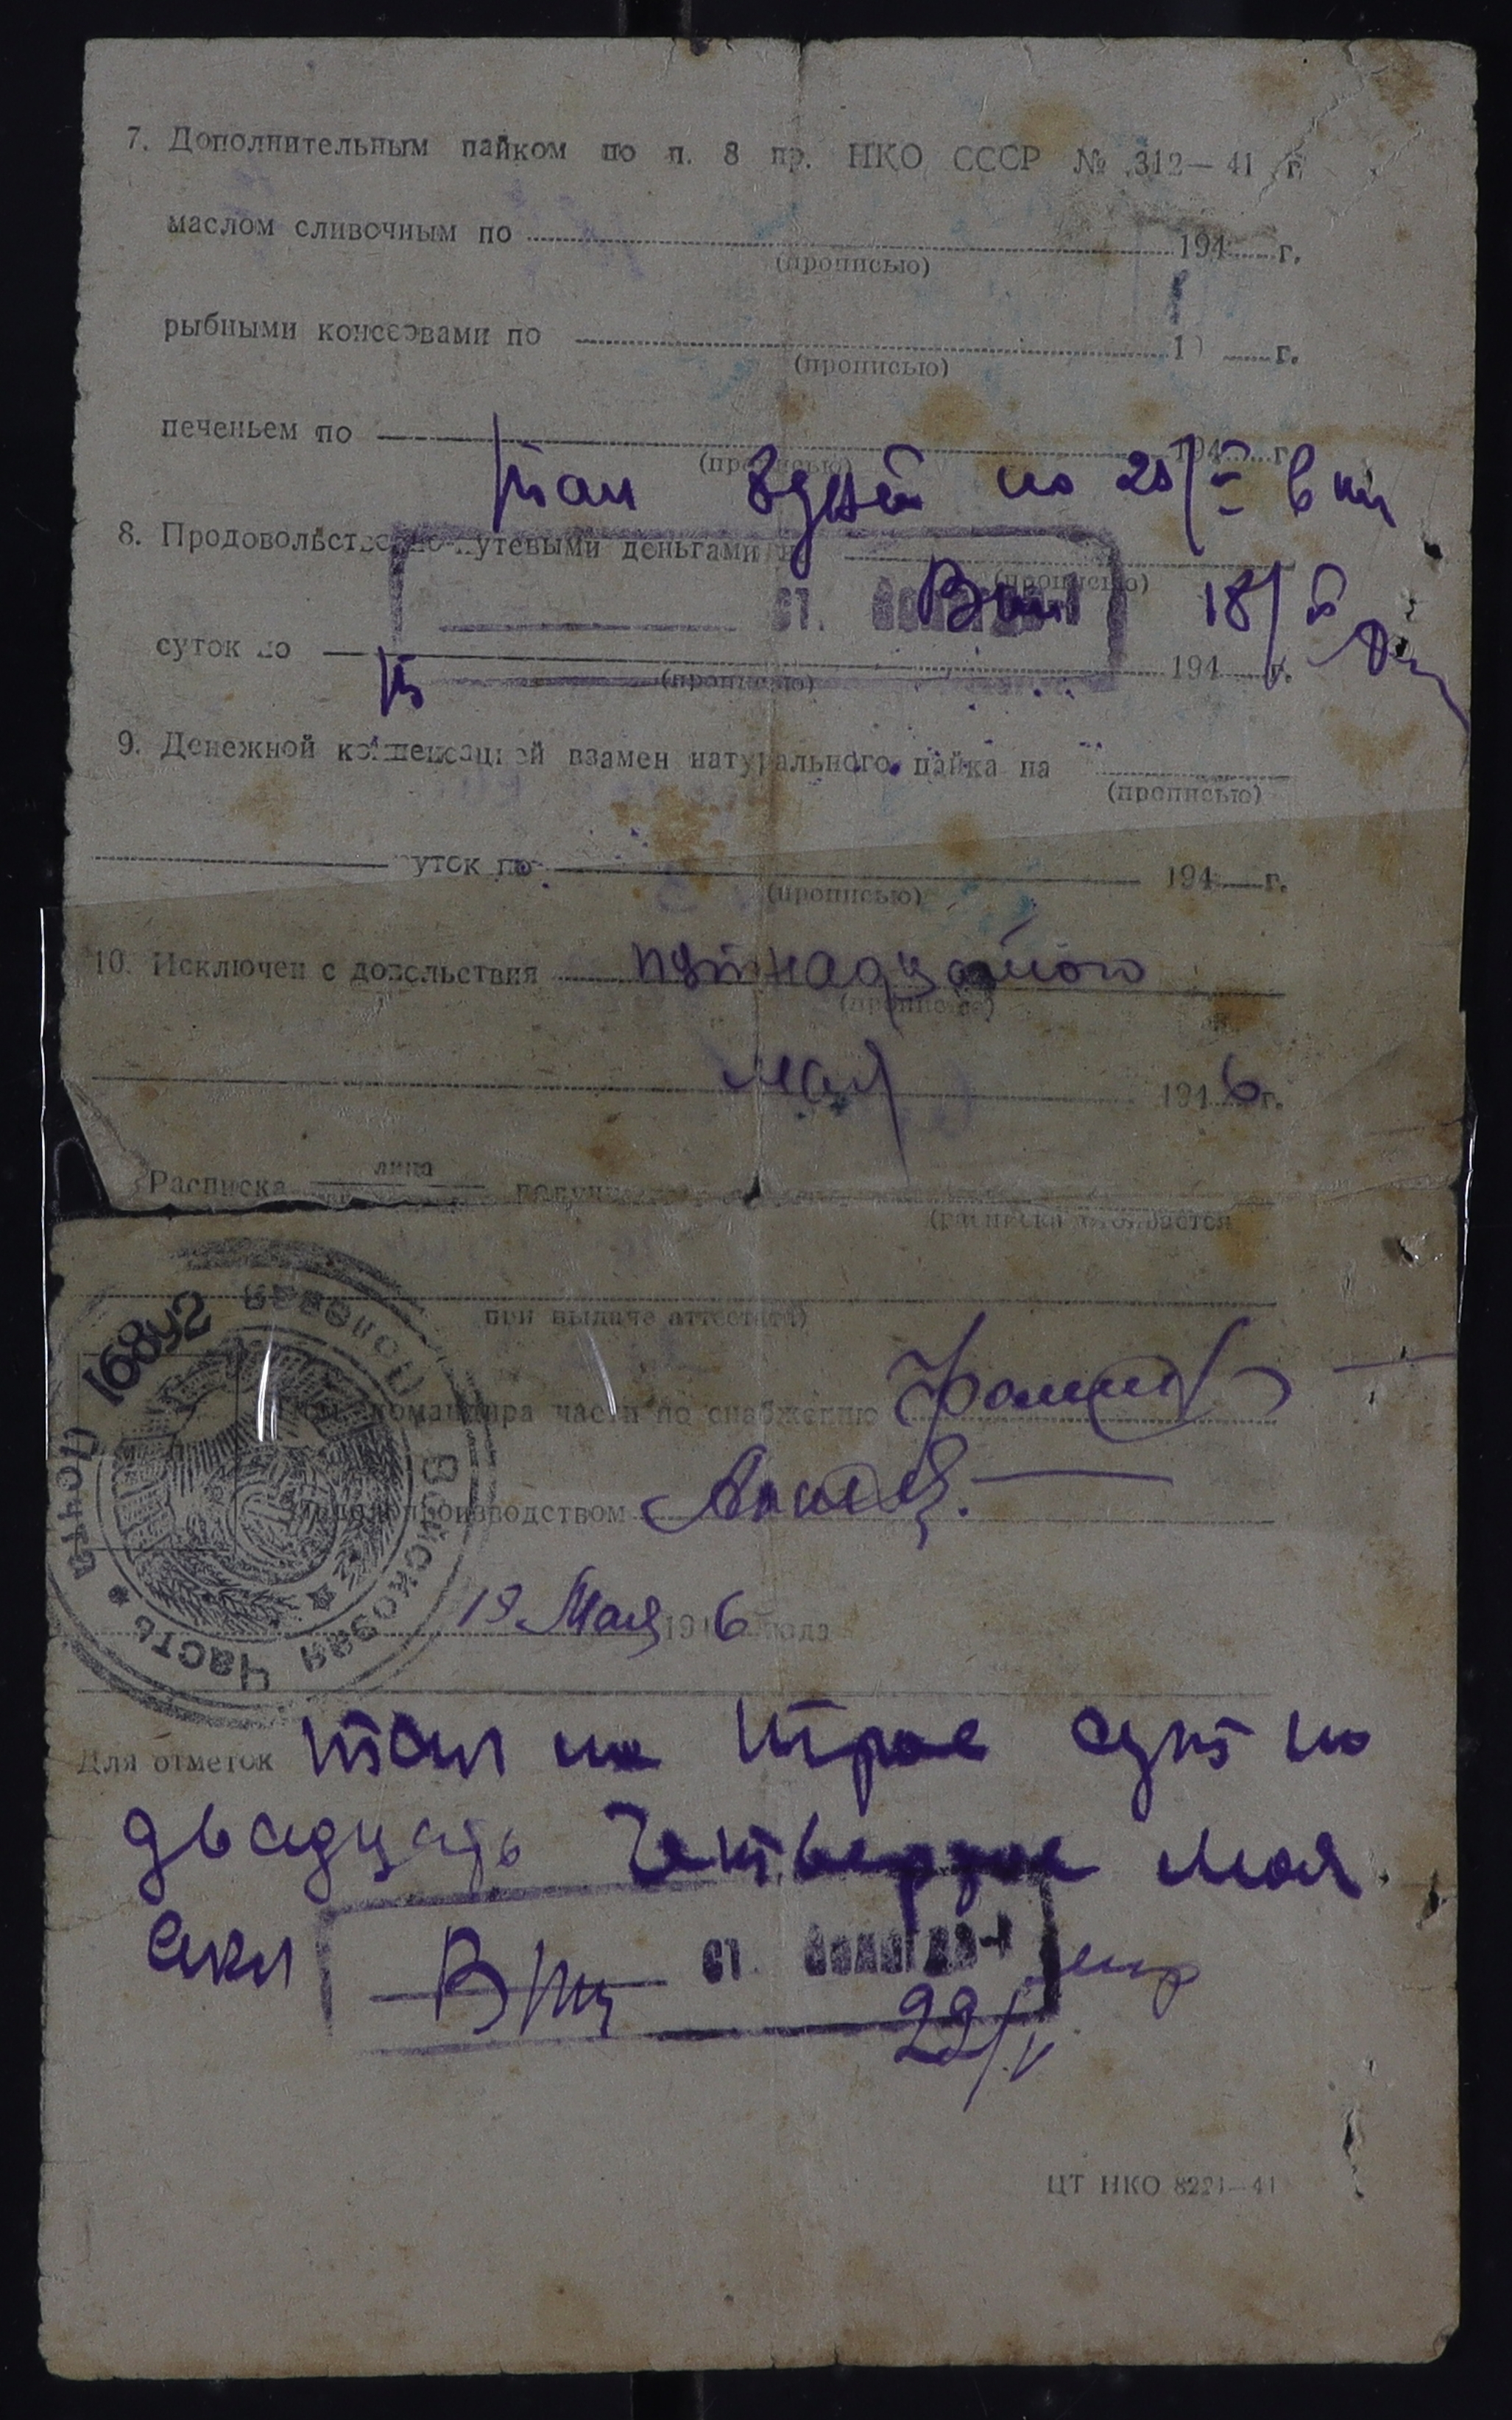 7. Дополнительным пайком по п. 8 пр. НКО СССР № 312—41 г.
маслом сливочным по 194 г.
(прописью)
рыбными консервами по 1 г.
(прописью)
печеньем по 194 г.
(прописью)
8. Продовольственно-путевыми деньгами
(прописью)
ст.
18/
суток по 194 г.
(прописью)
9. Денежной компенсацией взамен натурального пайка на
(прописью)
суток по 194 г.
(прописью)
10. Исключен с довольствия пятнадцатого
(прописью)
мая 1946 г.
Расписка лица
(расписка отбирается
при выдаче аттестата)
Полевая Почта 16892
Войсковая Часть
командира части по снабжению
Делопроизводством
19 Мая 1946 года
Для отметок на трое сут по
двадцать четвертое мая
ст.
22/V
ЦТ НКО 8221—41